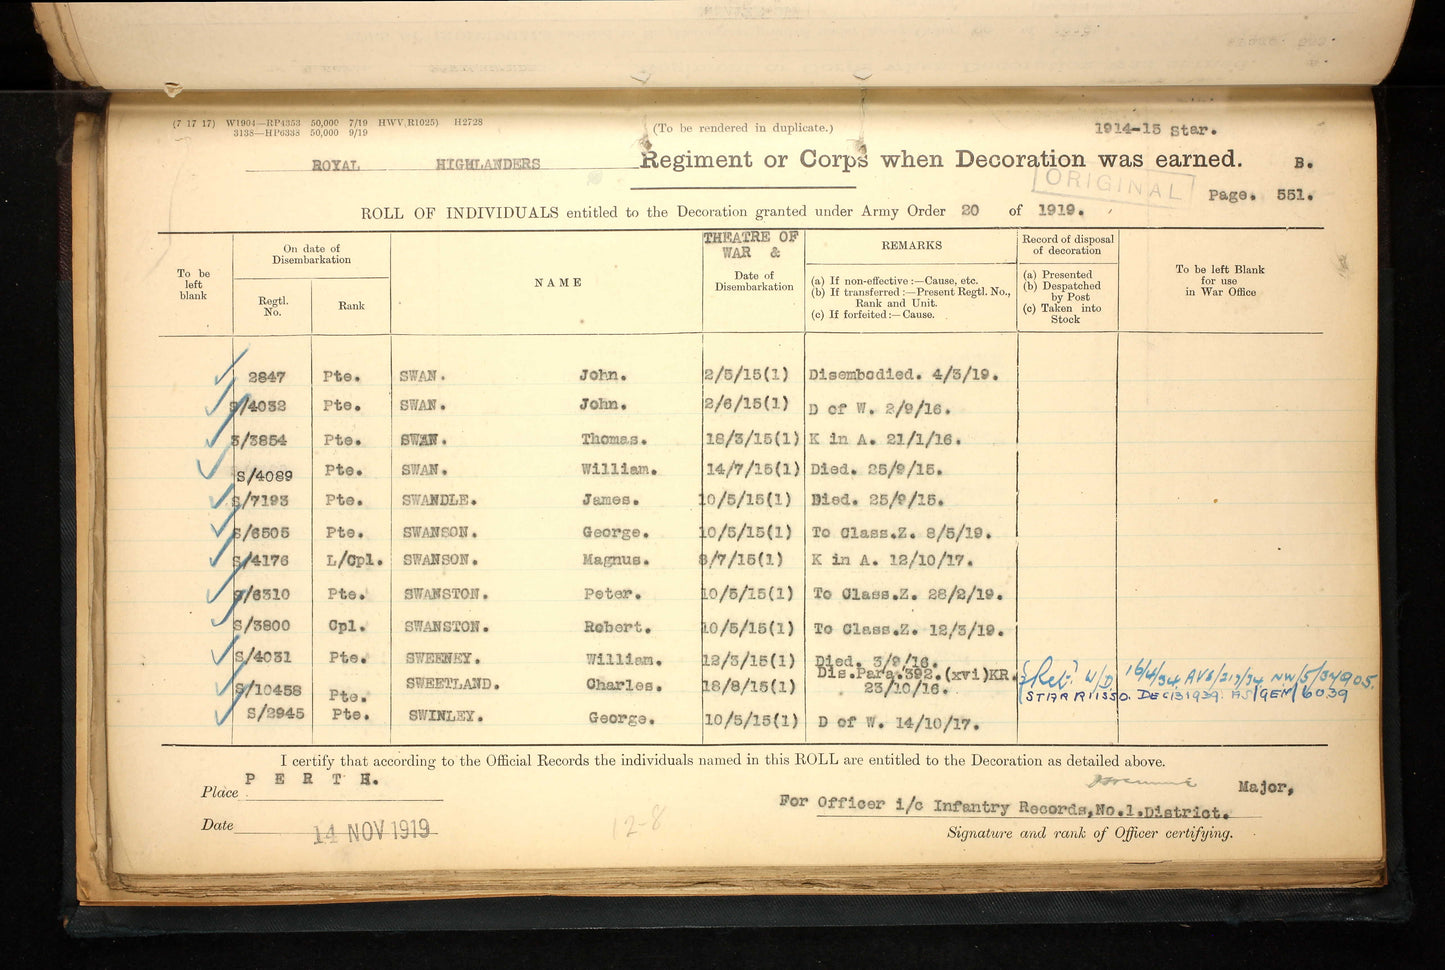 (7 17 17) W1904—RP4353 50,000 7/19 HWV,R1025) H2728
3138—HP6338 50,000 9/19
(To be rendered in duplicate.)
1914-15 Star.
ROYAL HIGHLANDERS Regiment or Corps when Decoration was earned. B.
ORIGINAL
Page. 551.
ROLL OF INDIVIDUALS entitled to the Decoration granted under Army Order 20 of 1919.
To be left blank
On date of Disembarkation
Regtl. No.
Rank
NAME
THEATRE OF WAR &
Date of Disembarkation
REMARKS
(a) If non-effective:—Cause, etc.
(b) If transferred:—Present Regtl. No., Rank and Unit.
(c) If forfeited:—Cause.
Record of disposal of decoration
(a) Presented
(b) Despatched by Post
(c) Taken into Stock
To be left Blank for use in War Office
2847 Pte. SWAN. John. 2/5/15(1) Disembodied. 4/3/19.
S/4032 Pte. SWAN. John. 2/6/15(1) D of W. 2/9/16.
3/3854 Pte. SWAN. Thomas. 18/3/15(1) K in A. 21/1/16.
S/4089 Pte. SWAN. William. 14/7/15(1) Died. 25/9/15.
S/7193 Pte. SWANDLE. James. 10/5/15(1) Died. 25/9/15.
S/6505 Pte. SWANSON. George. 10/5/15(1) To Class.Z. 8/5/19.
S/4176 L/Cpl. SWANSON. Magnus. 8/7/15(1) K in A. 12/10/17.
S/6310 Pte. SWANSTON. Peter. 10/5/15(1) To Class.Z. 28/2/19.
S/3800 Cpl. SWANSTON. Robert. 10/5/15(1) To Class.Z. 12/3/19.
S/4031 Pte. SWEENEY. William. 12/3/15(1) Died. 3/9/16.
S/10458 Pte. SWEETLAND. Charles. 18/8/15(1) Dis.Para.392.(xvi)KR. 23/10/16.
S/2945 Pte. SWINLEY. George. 10/5/15(1) D of W. 14/10/17.
I certify that according to the Official Records the individuals named in this ROLL are entitled to the Decoration as detailed above.
Place PERTH.
Major,
For Officer i/c Infantry Records,No.1.District.
Date 14 NOV 1919
12-8
Signature and rank of Officer certifying.